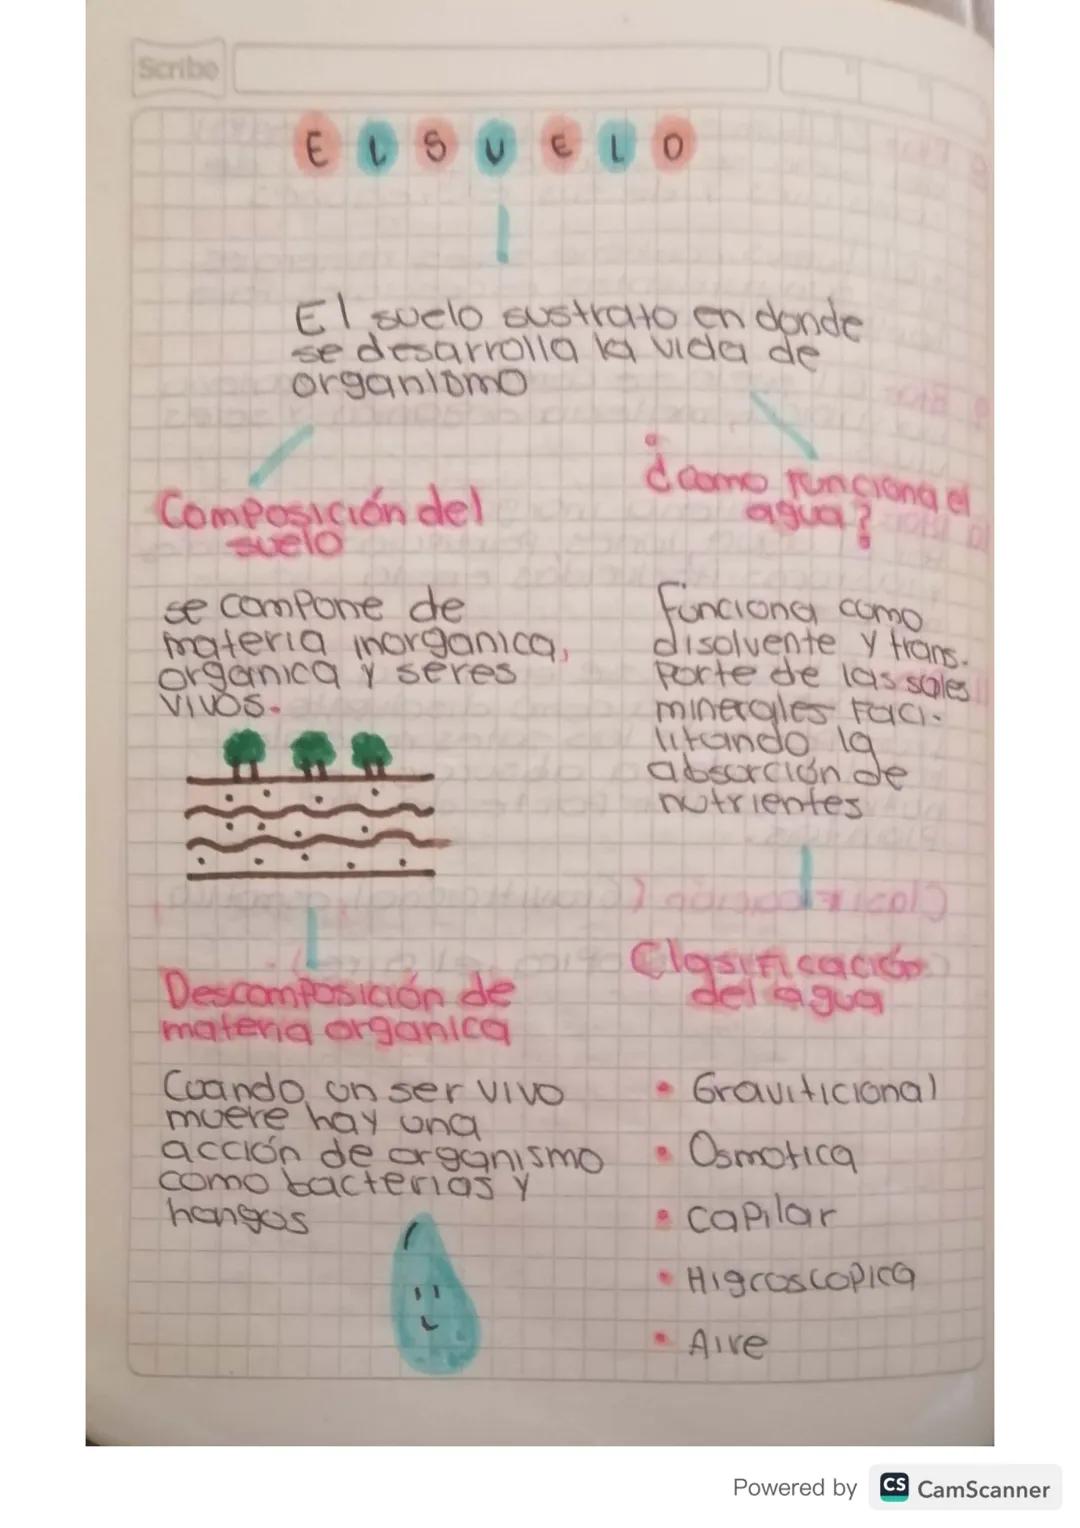 Scribe
EL SUELO
El suelo sustrato en donde
se desarrolla la vida de
organismo
Composición del
suelo
se compone de
materia inorganica,
organica y seres
vivos.
Descomposición de
materia organica
Cuando un ser vivo
muere hay una
acción de organismo
como bacterias y
hongos
¿como funciona el
agua?
Funciona como
disolvente y trans-
porte de las sales
minerales Faci-
litando la
absorción de
nutrientes
Clasificación
del agua
• Graviticional
• Osmotica
• capilar
• Higroscopica
• Aire
Powered by CS CamScanner